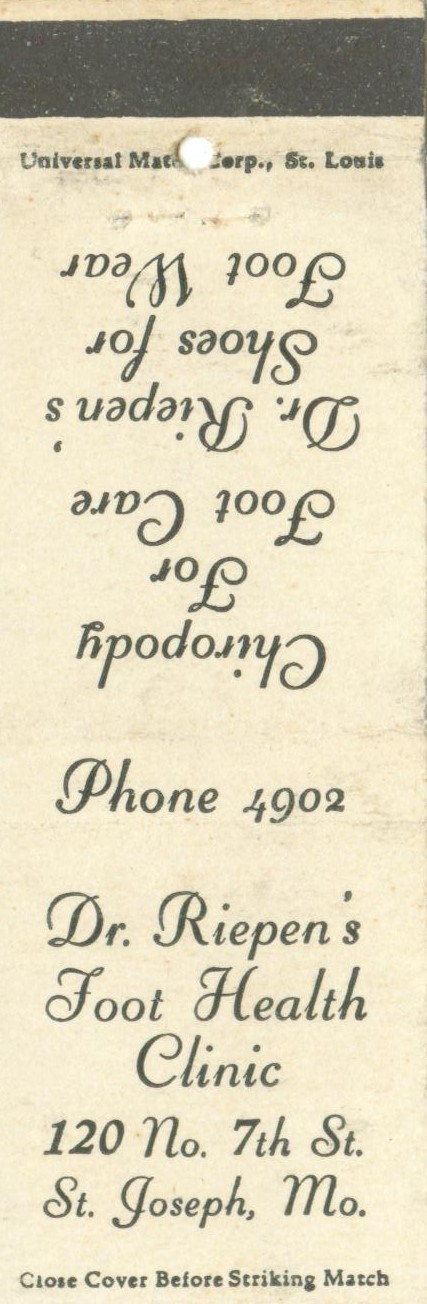 Universal Match Corp., St. Louis
Chiropody
For
Foot Care
Dr. Riepen's
Shoes for
Foot Wear
Phone 4902
Dr. Riepen's
Foot Health
Clinic
120 No. 7th St.
St. Joseph, Mo.
Close Cover Before Striking Match